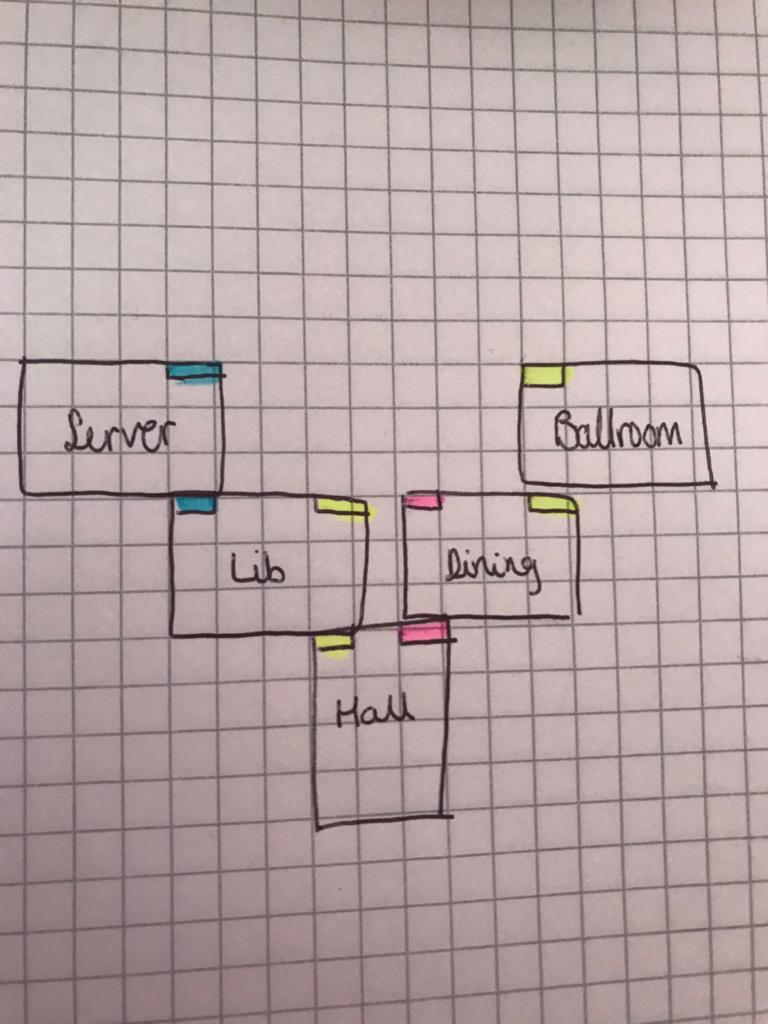 Server
Ballroom
Lib
Dining
Hall